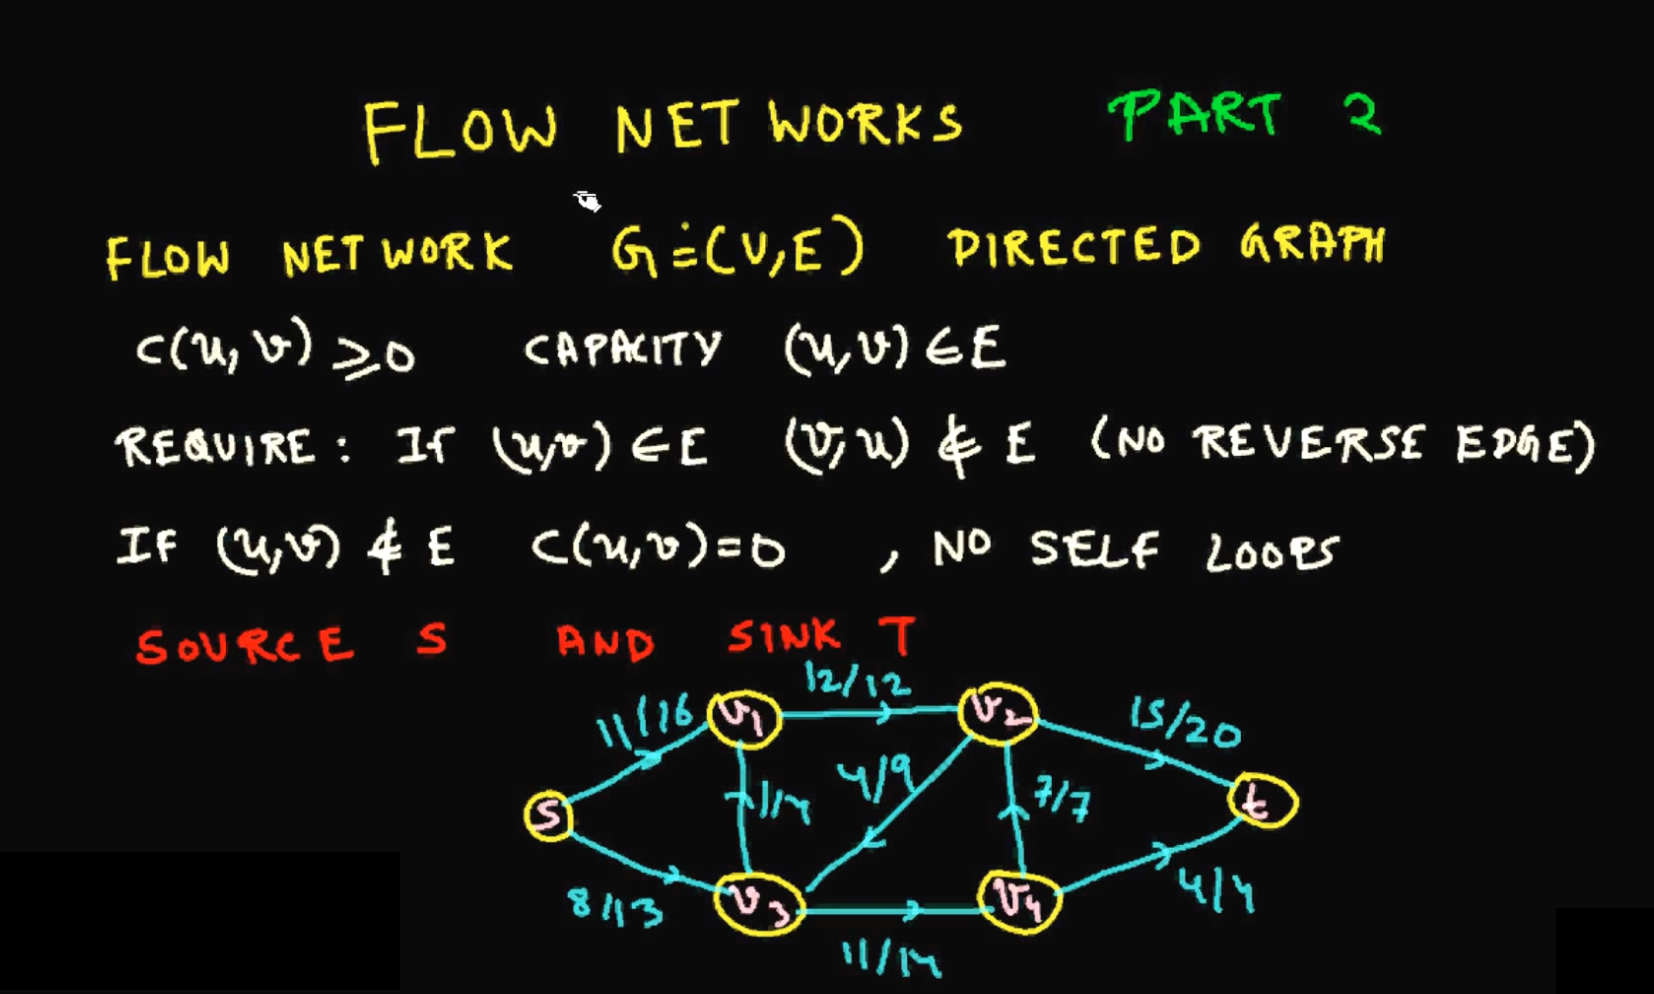 FLOW NETWORKS PART 2
FLOW NETWORK G=(V,E) DIRECTED GRAPH
C(u,v)⩾0 CAPACITY (u,v)∈E
REQUIRE: If (u,v)∈E (v,u)∉E (NO REVERSE EDGE)
IF (u,v)∉E C(u,v)=0 , NO SELF LOOPS
SOURCE S AND SINK T
12/12
11/16 v1 v2 15/20
4/9
s 1/4 7/7 t
8/13 v3 v4 4/4
11/14